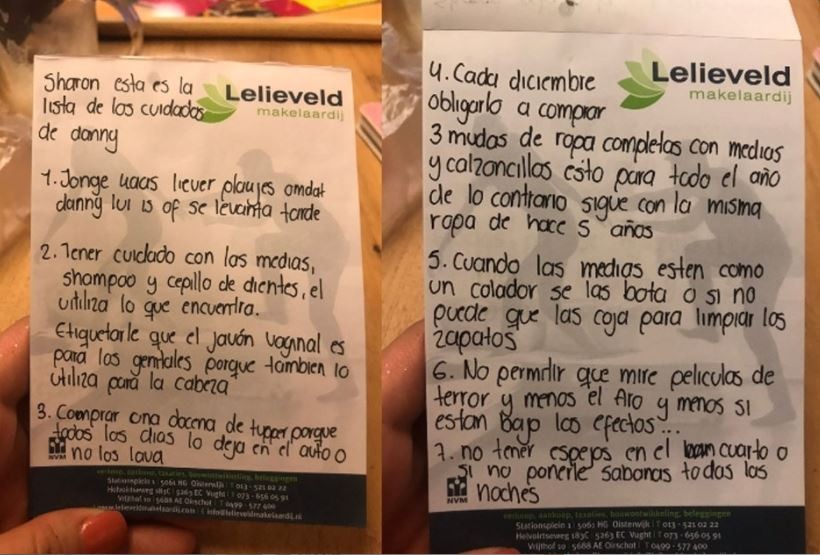 Sharon esta es la
lista de los cuidados
de danny
Lelieveld
makelaardij
1. Jonge kaas liever plakjes omdat
danny lui is of se levanta tarde
2. Tener cuidado con las medias,
shampoo y cepillo de dientes, el
utiliza lo que encuentra.
Etiquetarle que el javón vaginal es
para los genitales porque tambien lo
utiliza para la cabeza
3. Comprar una docena de tupper porque
todos los dias lo deja en el auto o
no los lava
NVM
verkoop, aankoop, taxaties, bouwontwikkeling, beleggingen
Stationsplein 1 | 5061 HG Oisterwijk | T 013 - 521 02 22
Helvoirtseweg 183C | 5263 EC Vught | T 073 - 656 05 91
Vrijthof 10 | 5688 AE Oirschot | T 0499 - 577 400
www.lelieveldmakelaardij.com | E info@lelieveldmakelaardij.nl
4. Cada diciembre
obligarlo a comprar
Lelieveld
makelaardij
3 mudas de ropa completas con medias
y calzoncillos esto para todo el año
de lo contrario sigue con la misma
ropa de hace 5 años
5. Cuando las medias esten como
un colador se las bota o si no
puede que las coja para limpiar los
zapatos
6. No permitir que mire peliculas de
terror y menos el Aro y menos si
estan bajo los efectos...
7. no tener espejos en el cuarto o
si no ponerle sabanas todas las
noches
NVM
verkoop, aankoop, taxaties, bouwontwikkeling, beleggingen
Stationsplein 1 | 5061 HG Oisterwijk | T 013 - 521 02 22
Helvoirtseweg 183C | 5263 EC Vught | T 073 - 656 05 91
Vrijthof 10 | 5688 AE Oirschot | T 0499 - 577 400